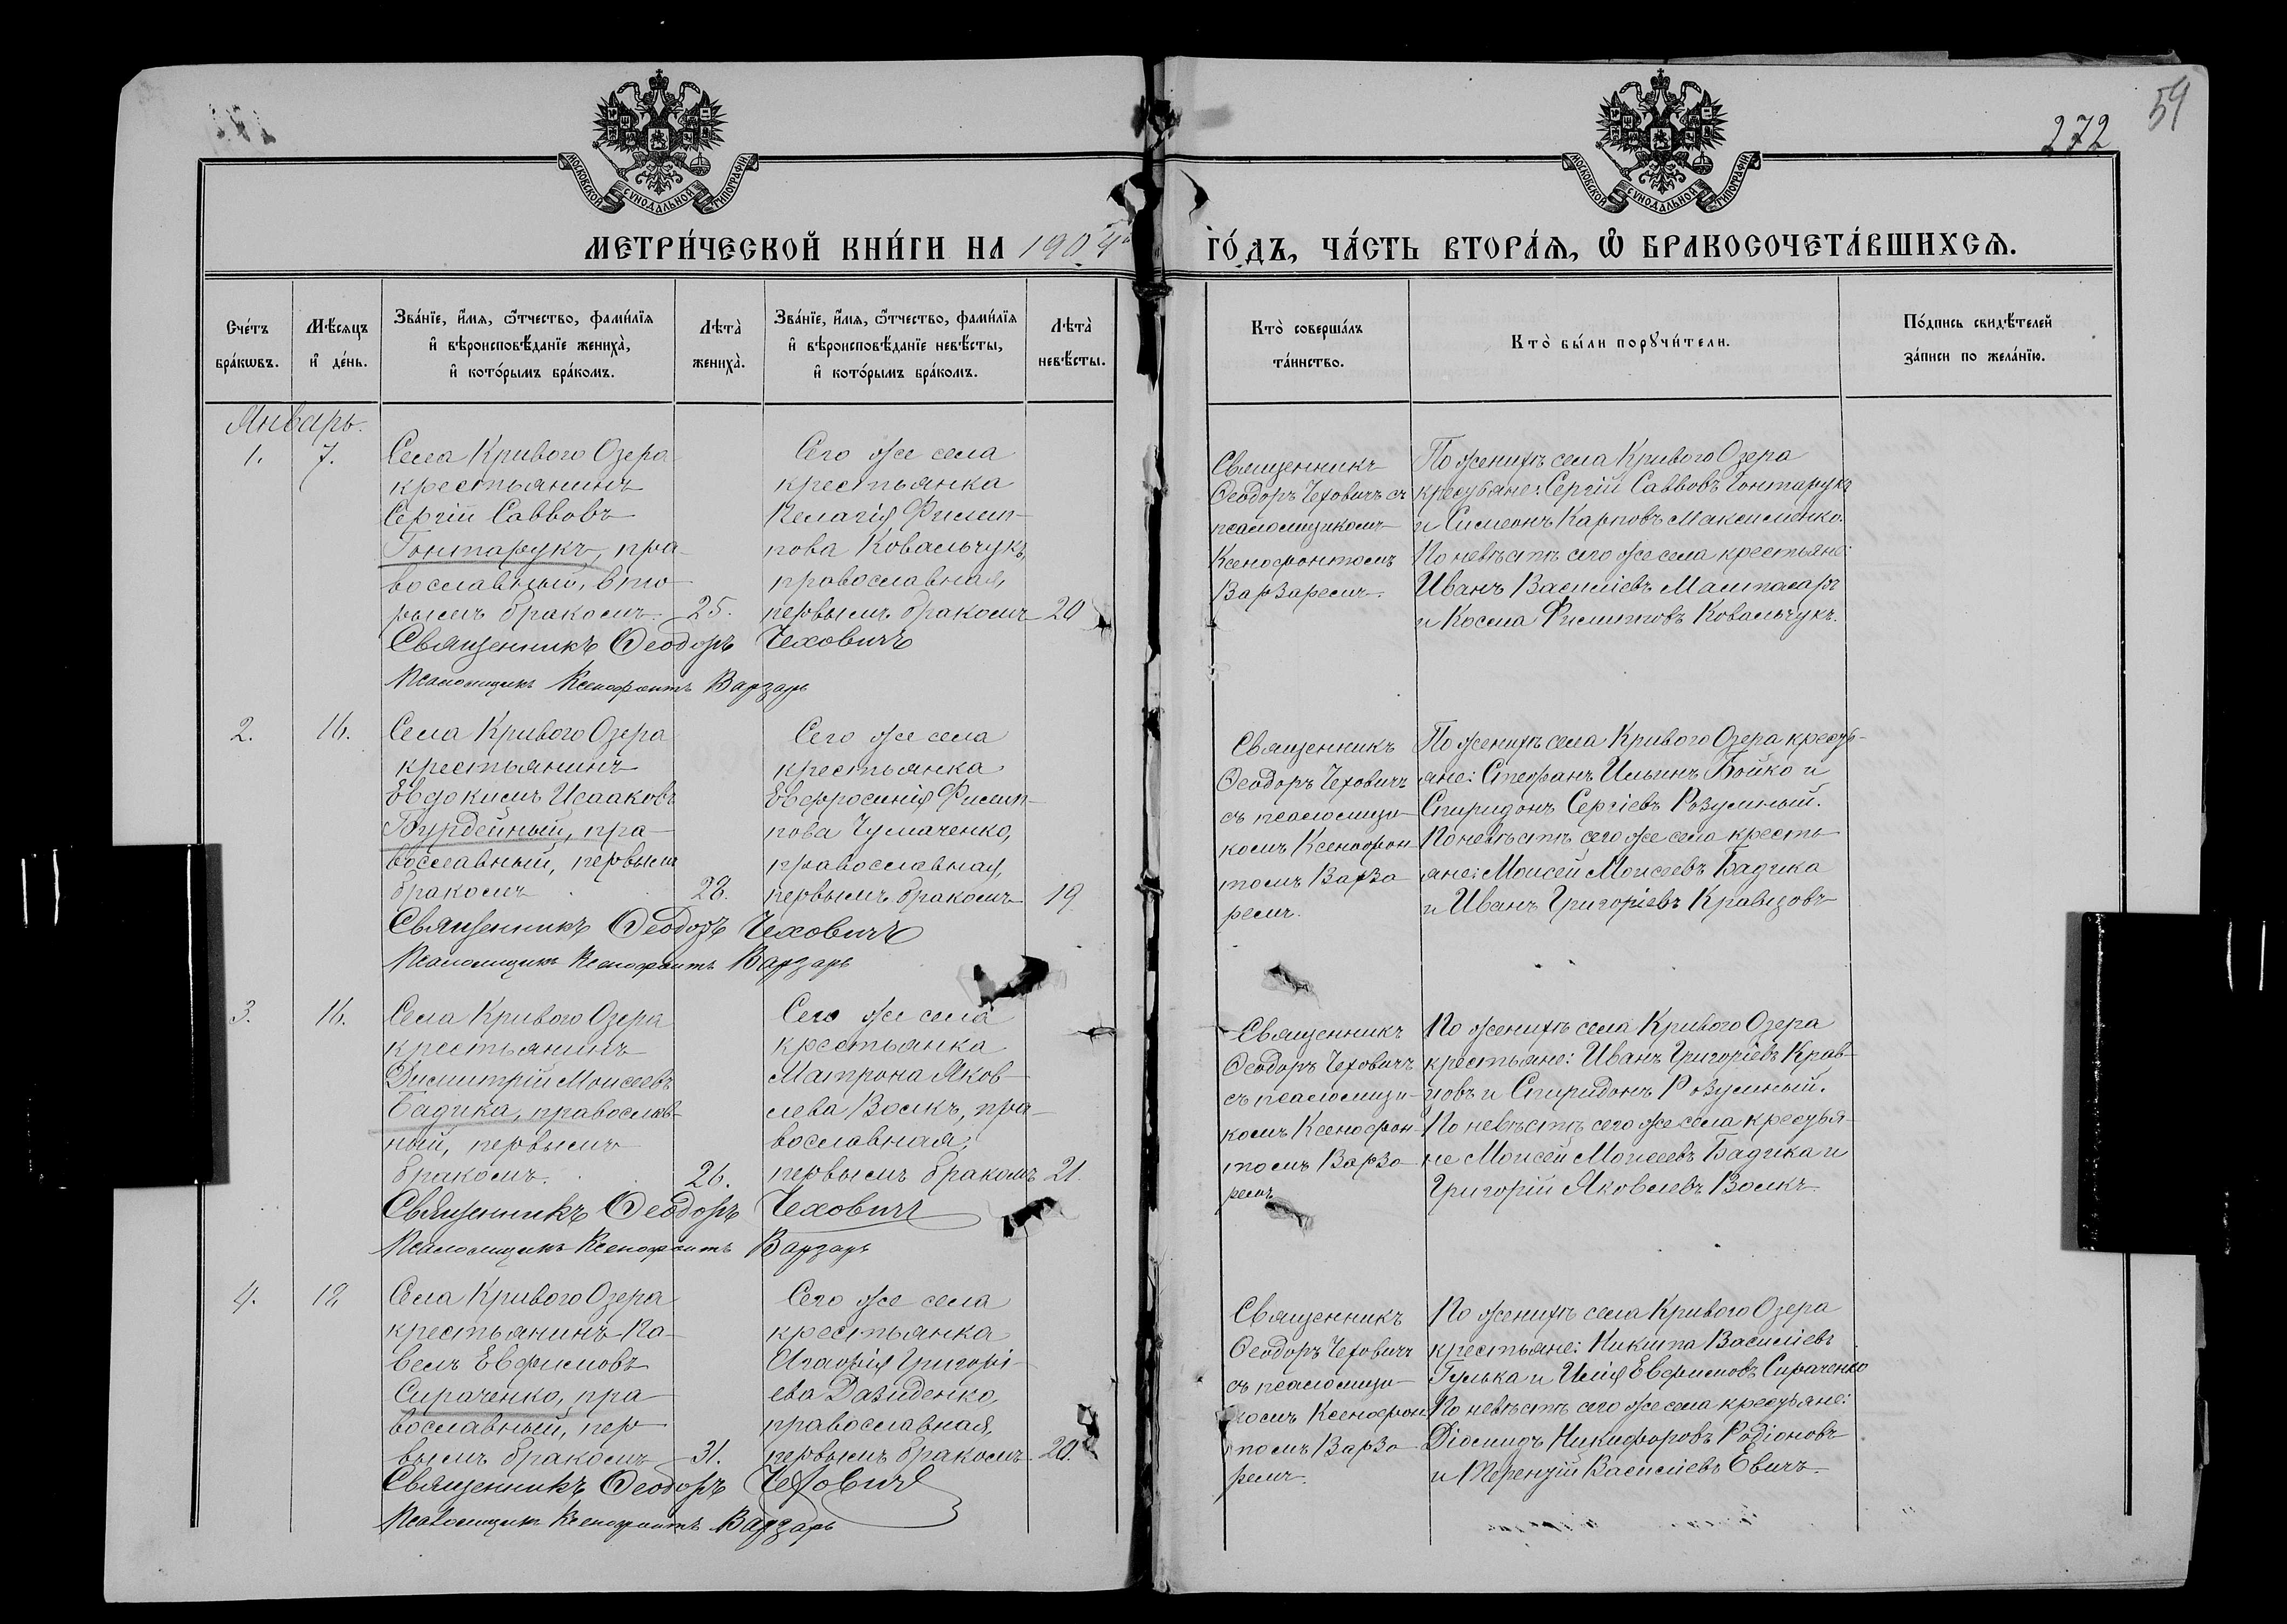 59
272
МОСКОВСКОЙ СѴНОДАЛЬНОЙ ТИПОГРАФІИ
МОСКОВСКОЙ СѴНОДАЛЬНОЙ ТИПОГРАФІИ
МЕТРИ́ЧЕСКОЙ КНИ́ГИ НА 1904й
ГО́ДЪ, ЧА́СТЬ ВТОРА́Ѧ, Ѡ҆ БРАКОСОЧЕТА́ВШИХСѦ.
Сче́тъ бра́кѡвъ.
Мѣ́сяцъ и҆ де́нь.
Зва́нїе, и҆́мя, ѻ҆́тчество, фами́лїя и҆ вѣроисповѣ́данїе жениха̀, и҆ кото́рымъ бра́комъ.
Лѣта̀ жениха̀.
Зва́нїе, и҆́мя, ѻ҆́тчество, фами́лїя и҆ вѣроисповѣ́данїе невѣ́сты, и҆ кото́рымъ бра́комъ.
Лѣта̀ невѣ́сты.
Кто̀ соверша́лъ та́инство.
Кто̀ бы́ли порꙋчи́тели.
По́дпись свидѣ́телей за́писи по жела́нїю.
Январь.
1.
7.
Села Криваго Озера
крестьянинъ
Сергій Саввовъ
Гонтарукъ, пра-
вославный, вто-
рымъ бракомъ
25.
Сего же села
крестьянка
Пелагія Филип-
пова Ковальчукъ,
православная,
первымъ бракомъ
20
Священникъ
Ѳеодоръ Чеховичъ съ
псаломщикомъ
Ксенофонтомъ
Варзаремъ.
По женихѣ села Криваго Озера
крестьяне: Сергій Саввовъ Гонтарукъ
и Симеонъ Карповъ Максименко.
По невѣстѣ сего же села крестьяне:
Иванъ Василіевъ
и Косма Филипповъ Ковальчукъ.
Священникъ Ѳеодоръ Чеховичъ
Псаломщикъ Ксенофонтъ Варзарь
2.
16.
Села Криваго Озера
крестьянинъ
Евдокимъ Исааковъ
Бурдейный, пра-
вославный, первымъ
бракомъ
28.
Сего же села
крестьянка
Евфросинія Филип-
пова Чумаченко,
православная,
первымъ бракомъ
19
Священникъ
Ѳеодоръ Чеховичъ
съ псаломщи-
комъ Ксенофон-
томъ Варза-
ремъ.
По женихѣ села Криваго Озера кресть-
яне: Стефанъ Ильинъ Бойко и
Спиридонъ Сергіевъ Розумный.
По невѣстѣ сего же села кресть-
яне: Моисей Моисеевъ Бадика
и Иванъ Григоріевъ Кравцовъ
Священникъ Ѳеодоръ Чеховичъ
Псаломщикъ Ксенофонтъ Варзарь
3.
16.
Села Криваго Озера
крестьянинъ
Димитрій Моисеевъ
Бадика, православ-
ный, первымъ
бракомъ.
26.
Сего же села
крестьянка
Матрона Яков-
лева Волкъ, пра-
вославная,
первымъ бракомъ
21.
Священникъ
Ѳеодоръ Чеховичъ
съ псаломщи-
комъ Ксенофон-
томъ Варза-
ремъ
По женихѣ села Криваго Озера
крестьяне: Иванъ Григоріевъ Крав-
цовъ и Спиридонъ Розумный.
По невѣстѣ сего же села крестья-
не Моисей Моисеевъ Бадика и
Григорій Яковлевъ Волкъ.
Священникъ Ѳеодоръ Чеховичъ
Псаломщикъ Ксенофонтъ Варзарь
4.
18
Села Криваго Озера
крестьянинъ Па-
велъ Евфимовъ
Сираченко, пра-
вославный, пер-
вымъ бракомъ
31.
Сего же села
крестьянка
Агафія Григорі-
ева Давиденко,
православная,
первымъ бракомъ
20.
Священникъ
Ѳеодоръ Чеховичъ
съ псаломщи-
комъ Ксенофон-
томъ Варза-
ремъ.
По женихѣ села Криваго Озера
крестьяне: Никита Василіевъ
Гулька и Илія Евфимовъ Сираченко
По невѣстѣ сего же села крестьяне:
Діомидъ Никифоровъ Родіоновъ
и Терентій Василіевъ Евичъ.
Священникъ Ѳеодоръ Чеховичъ
Псаломщикъ Ксенофонтъ Варзарь